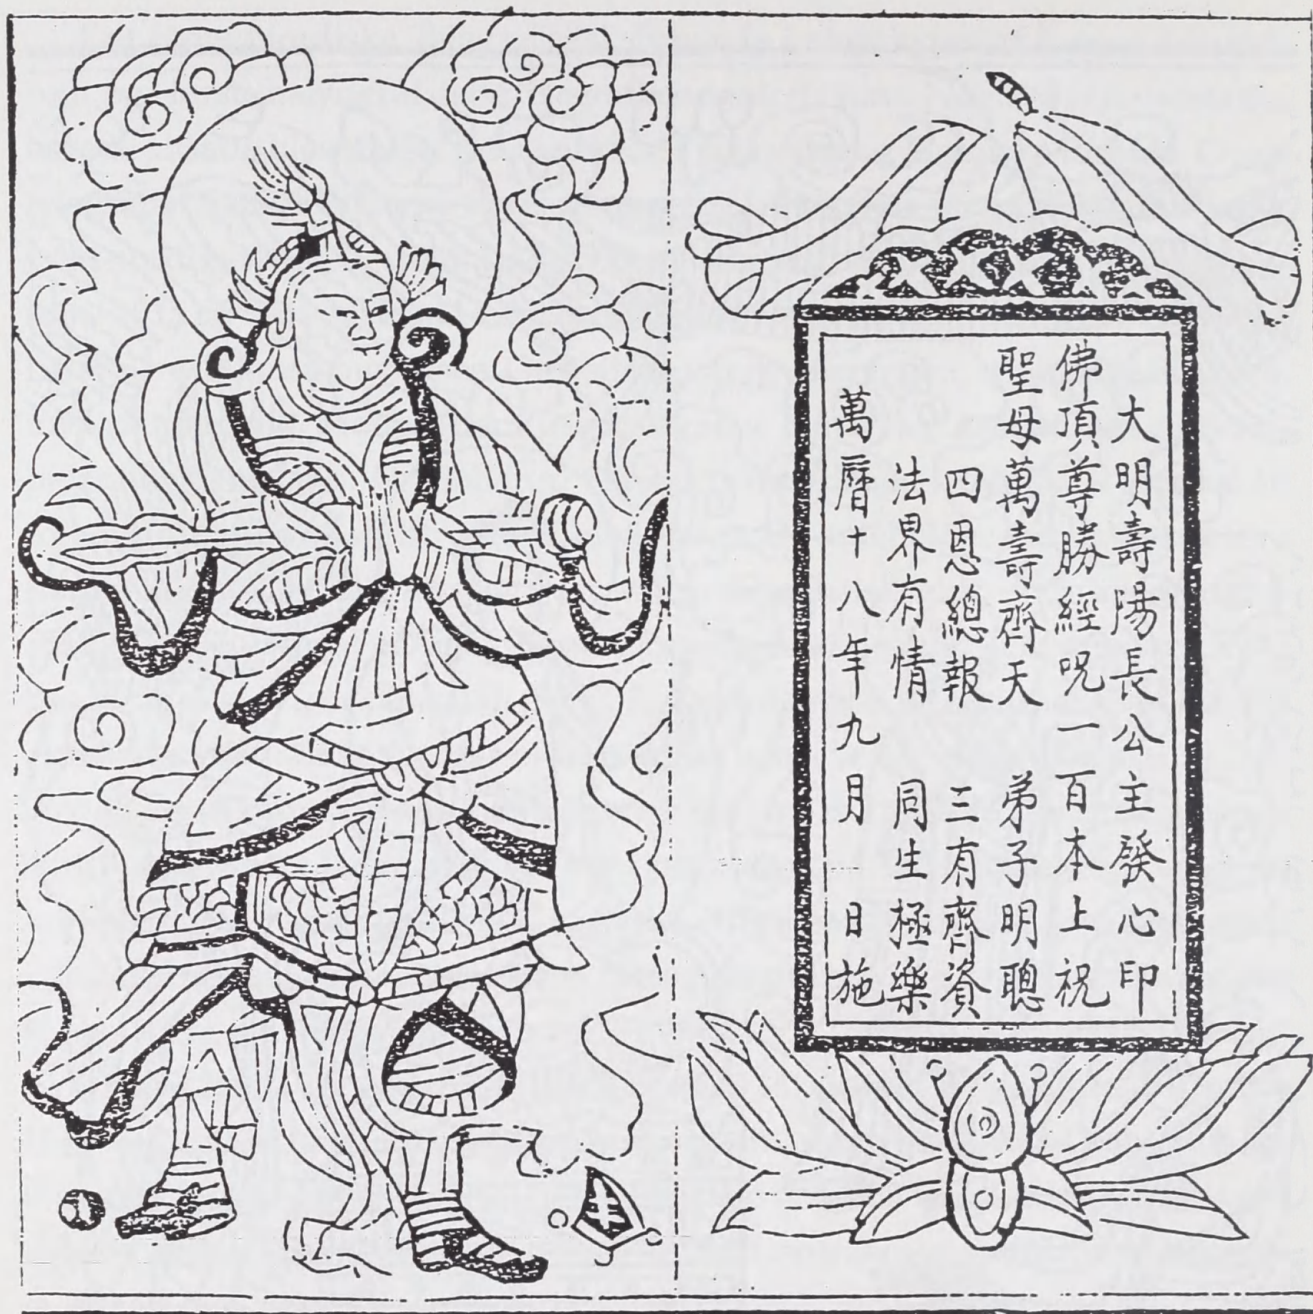 大明壽陽長公主發心印
佛頂尊勝經呪一百本上祝
聖母萬壽齊天 弟子明聰
四恩總報 三有齊資
法界有情 同生極樂
萬曆十八年九月 日施